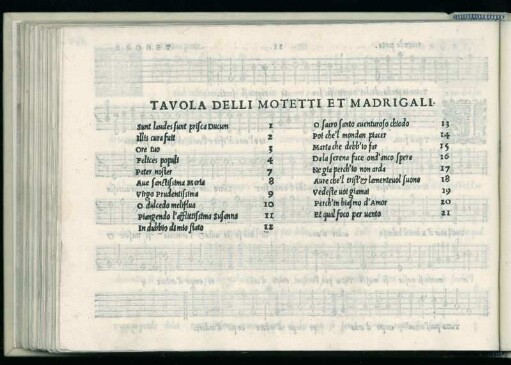 TAVOLA DELLI MOTETTI ET MADRIGALI.
Sunt laudes sunt prisca Ducum 1
Illis cura fuit 2
Ore tuo 3
Felices populi 4
Pater noster 7
Aue sanctissima maria 8
Virgo Prudentissima 9
O dulcedo meliflua 10
Piangendo l'afflittissima Susanna 11
In dubbio di mio stato 12
O sacro santo auenturoso chiodo 13
Poi che'l mondan piacer 14
Maria che debb'io far 15
Da la serena face ond'anco spero 16
Ne gia perch'io non arda 17
Aure che'l trist' & lamenteuol suono 18
Vedeste uoi giamai 19
Perch'in biasmo d'Amor 20
Et qual foco per uento 21